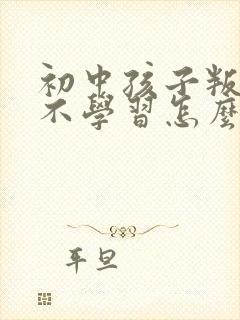 初中孩子叛
不學習怎麼
平旦